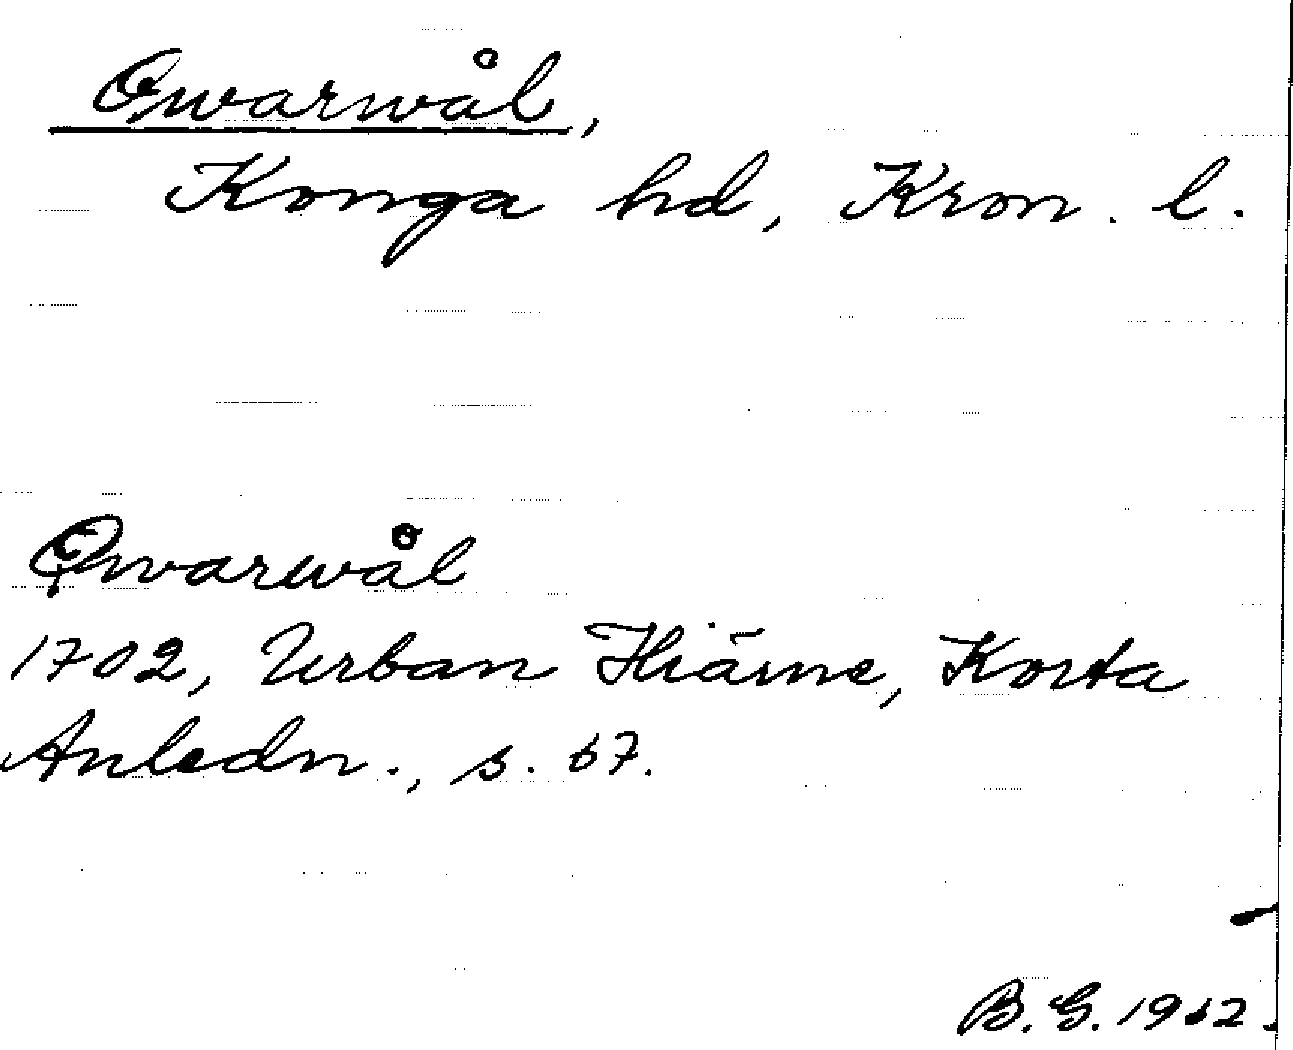 Qwarwål,
Konga hd, Kron. l.
Qwarwål
1702, Urban Hiärne, Korta
Anledn., s. 67.
B. G. 1962.